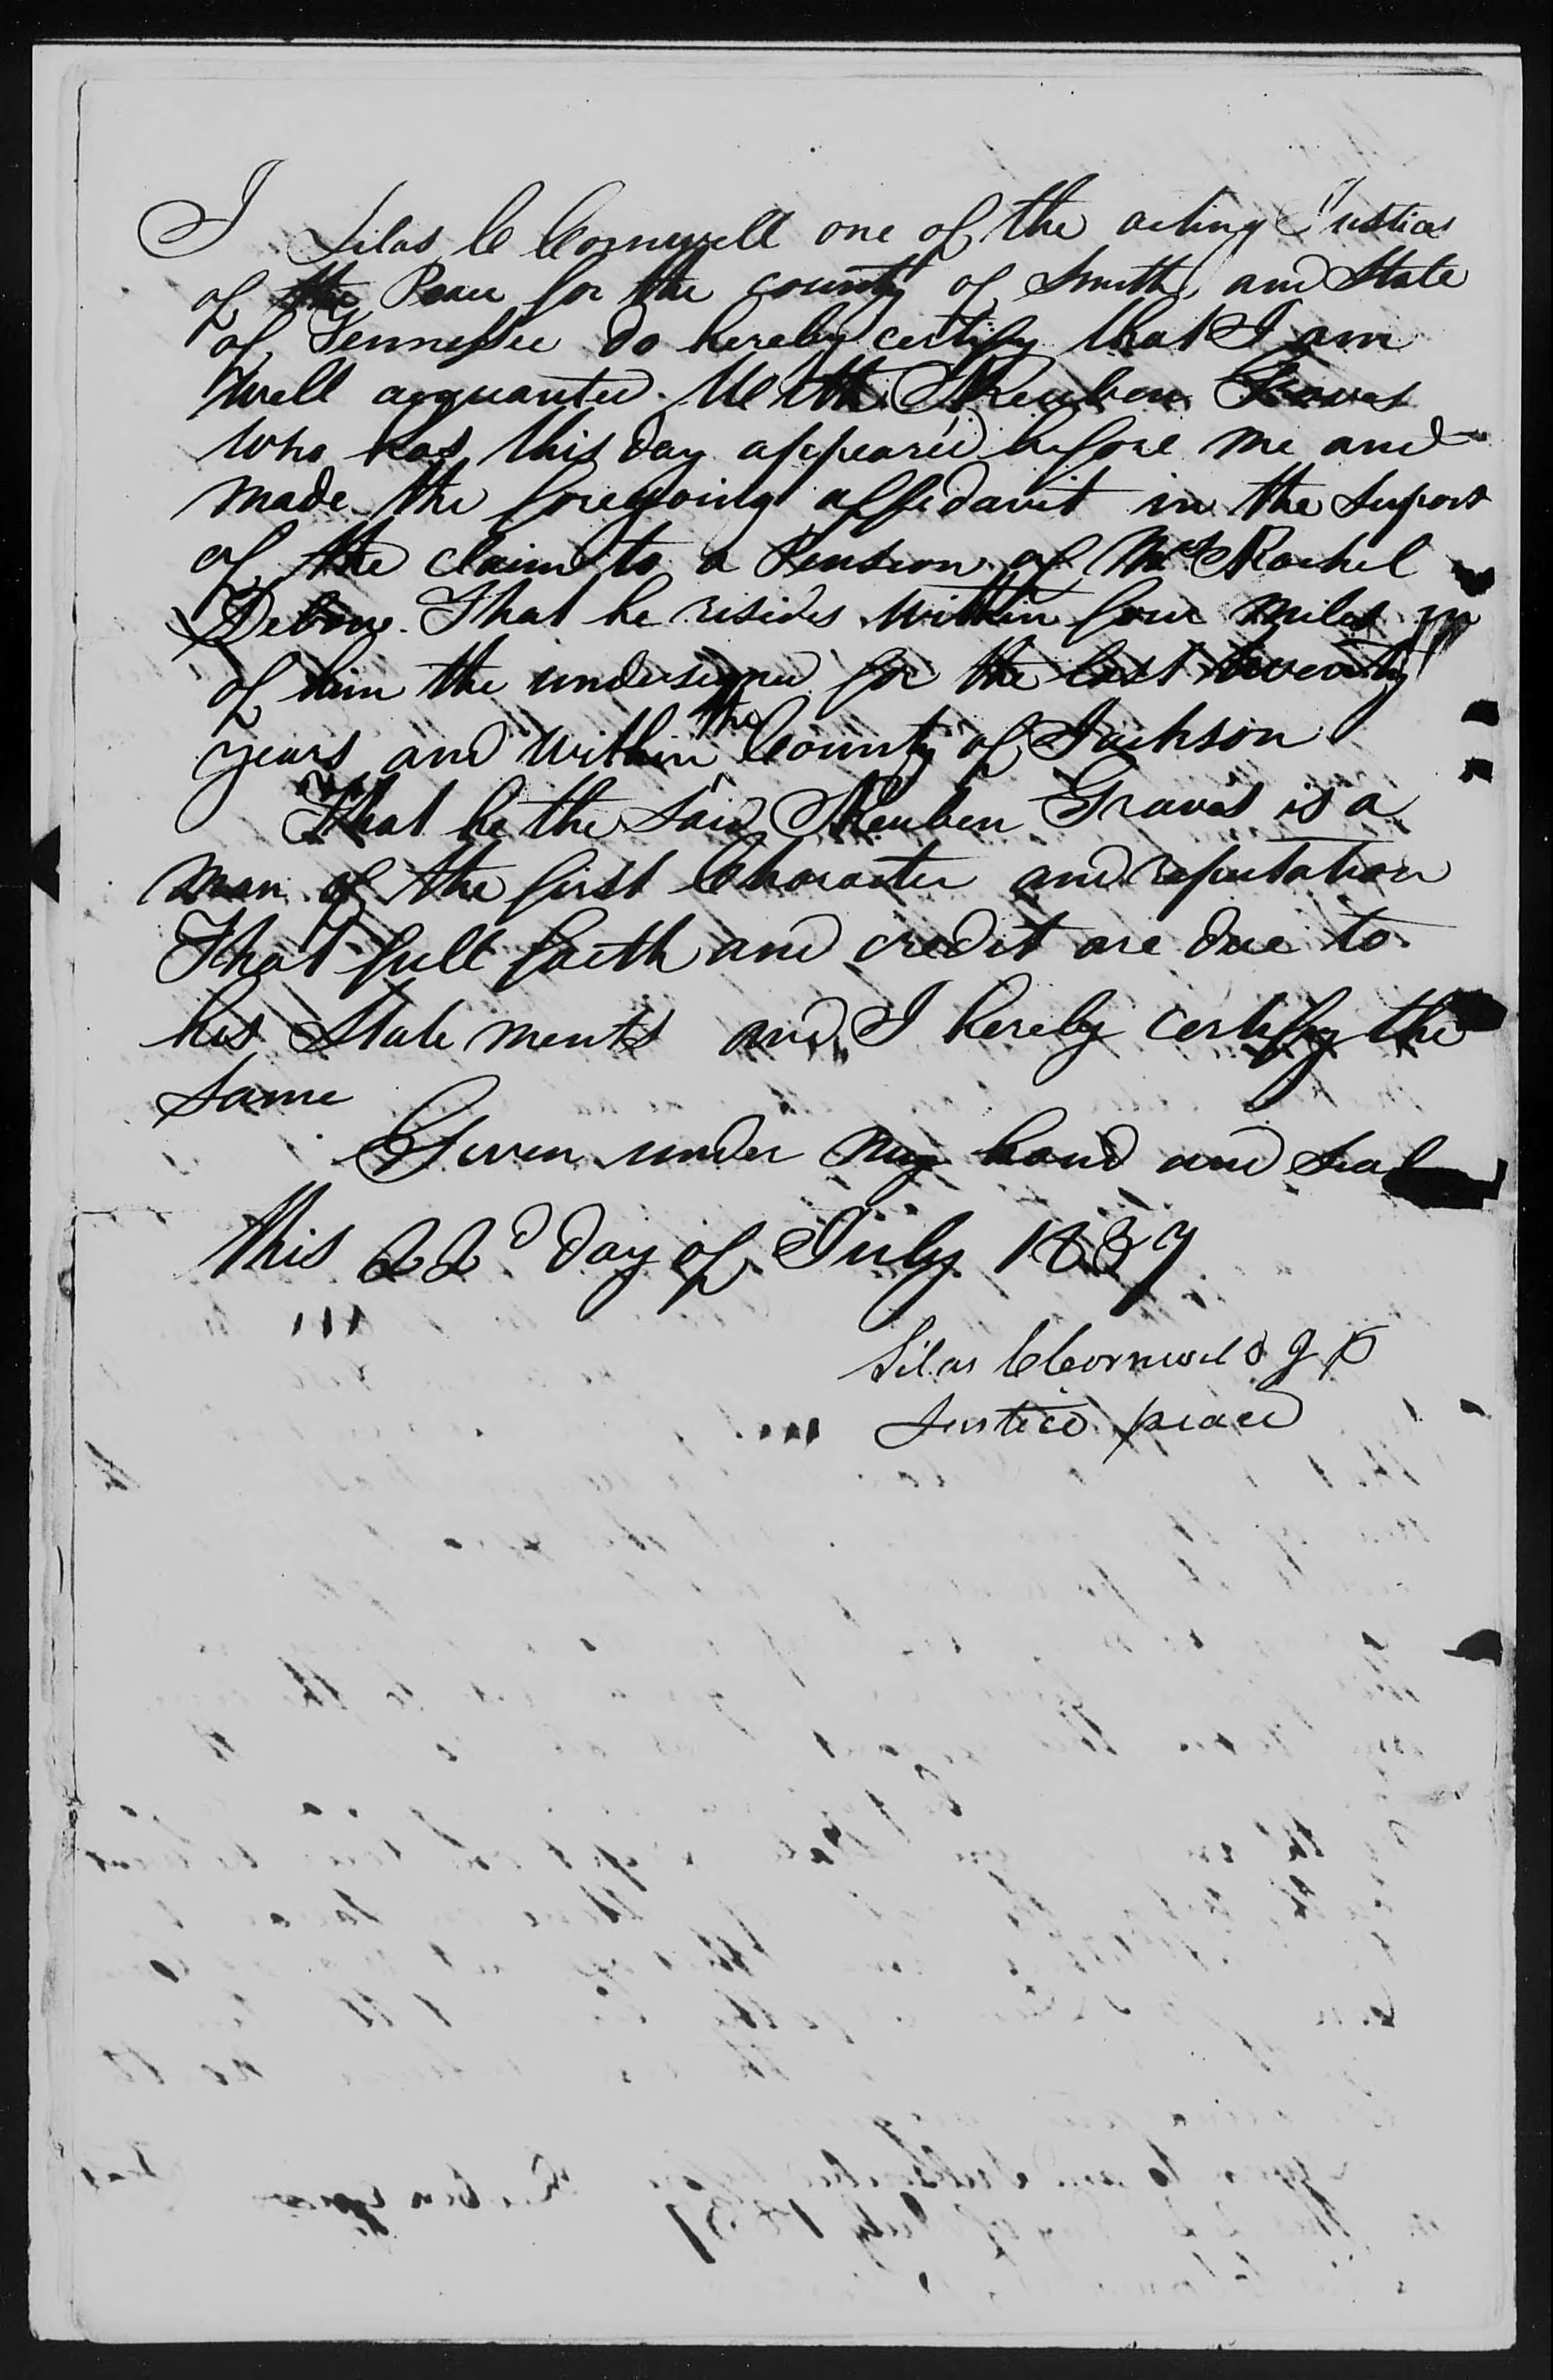 I Silas C Cornwell one of the acting Justices
of the Peace for the county of Smith and State
of Tennessee do hereby certify that I am
well acquanted With Reuben Graves
who has this day appeared before me and
made the foregoing affidavit in the Suport
of the claim to a Pension of Mrs Rachel
Debow. That he resides within four miles
of him the undersigned for the last twenty
years and within the County of Jackson
That he the said Reuben Graves is a
man of the first Character and reputation
That full faith and credit are due to
his State ments and I hereby certify the
same
Given under my hand and seal
this 22d day of July 1839
Silas C Cornwell J P
Justice peace